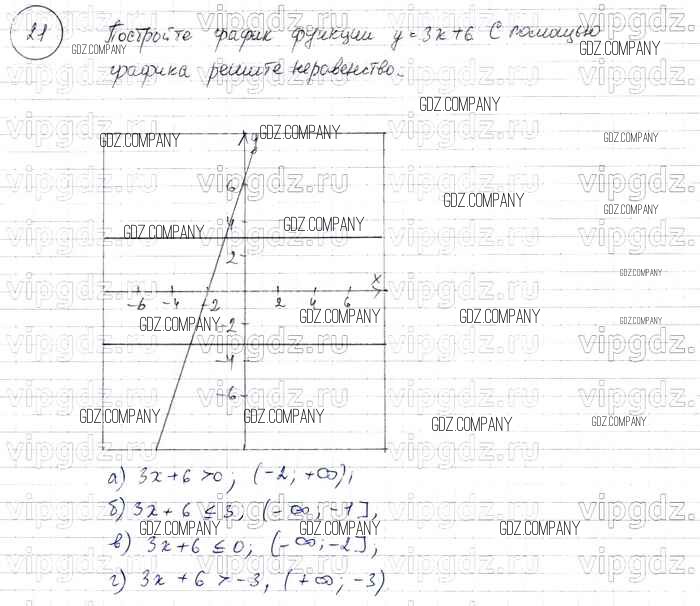 21 Постройте график функции y = 3x+6 С помощью
графика решите неравенство.
y
6
4
2
-6 -4 -2 2 4 6 x
-2
-4
-6
а) 3x+6 >0; (-2; +∞);
б) 3x+6 ≤ 3, (-∞; -1],
в) 3x+6 ≤ 0, (-∞; -2],
г) 3x+6 > -3, (+∞; -3)
GDZ.COMPANY
vipgdz.ru